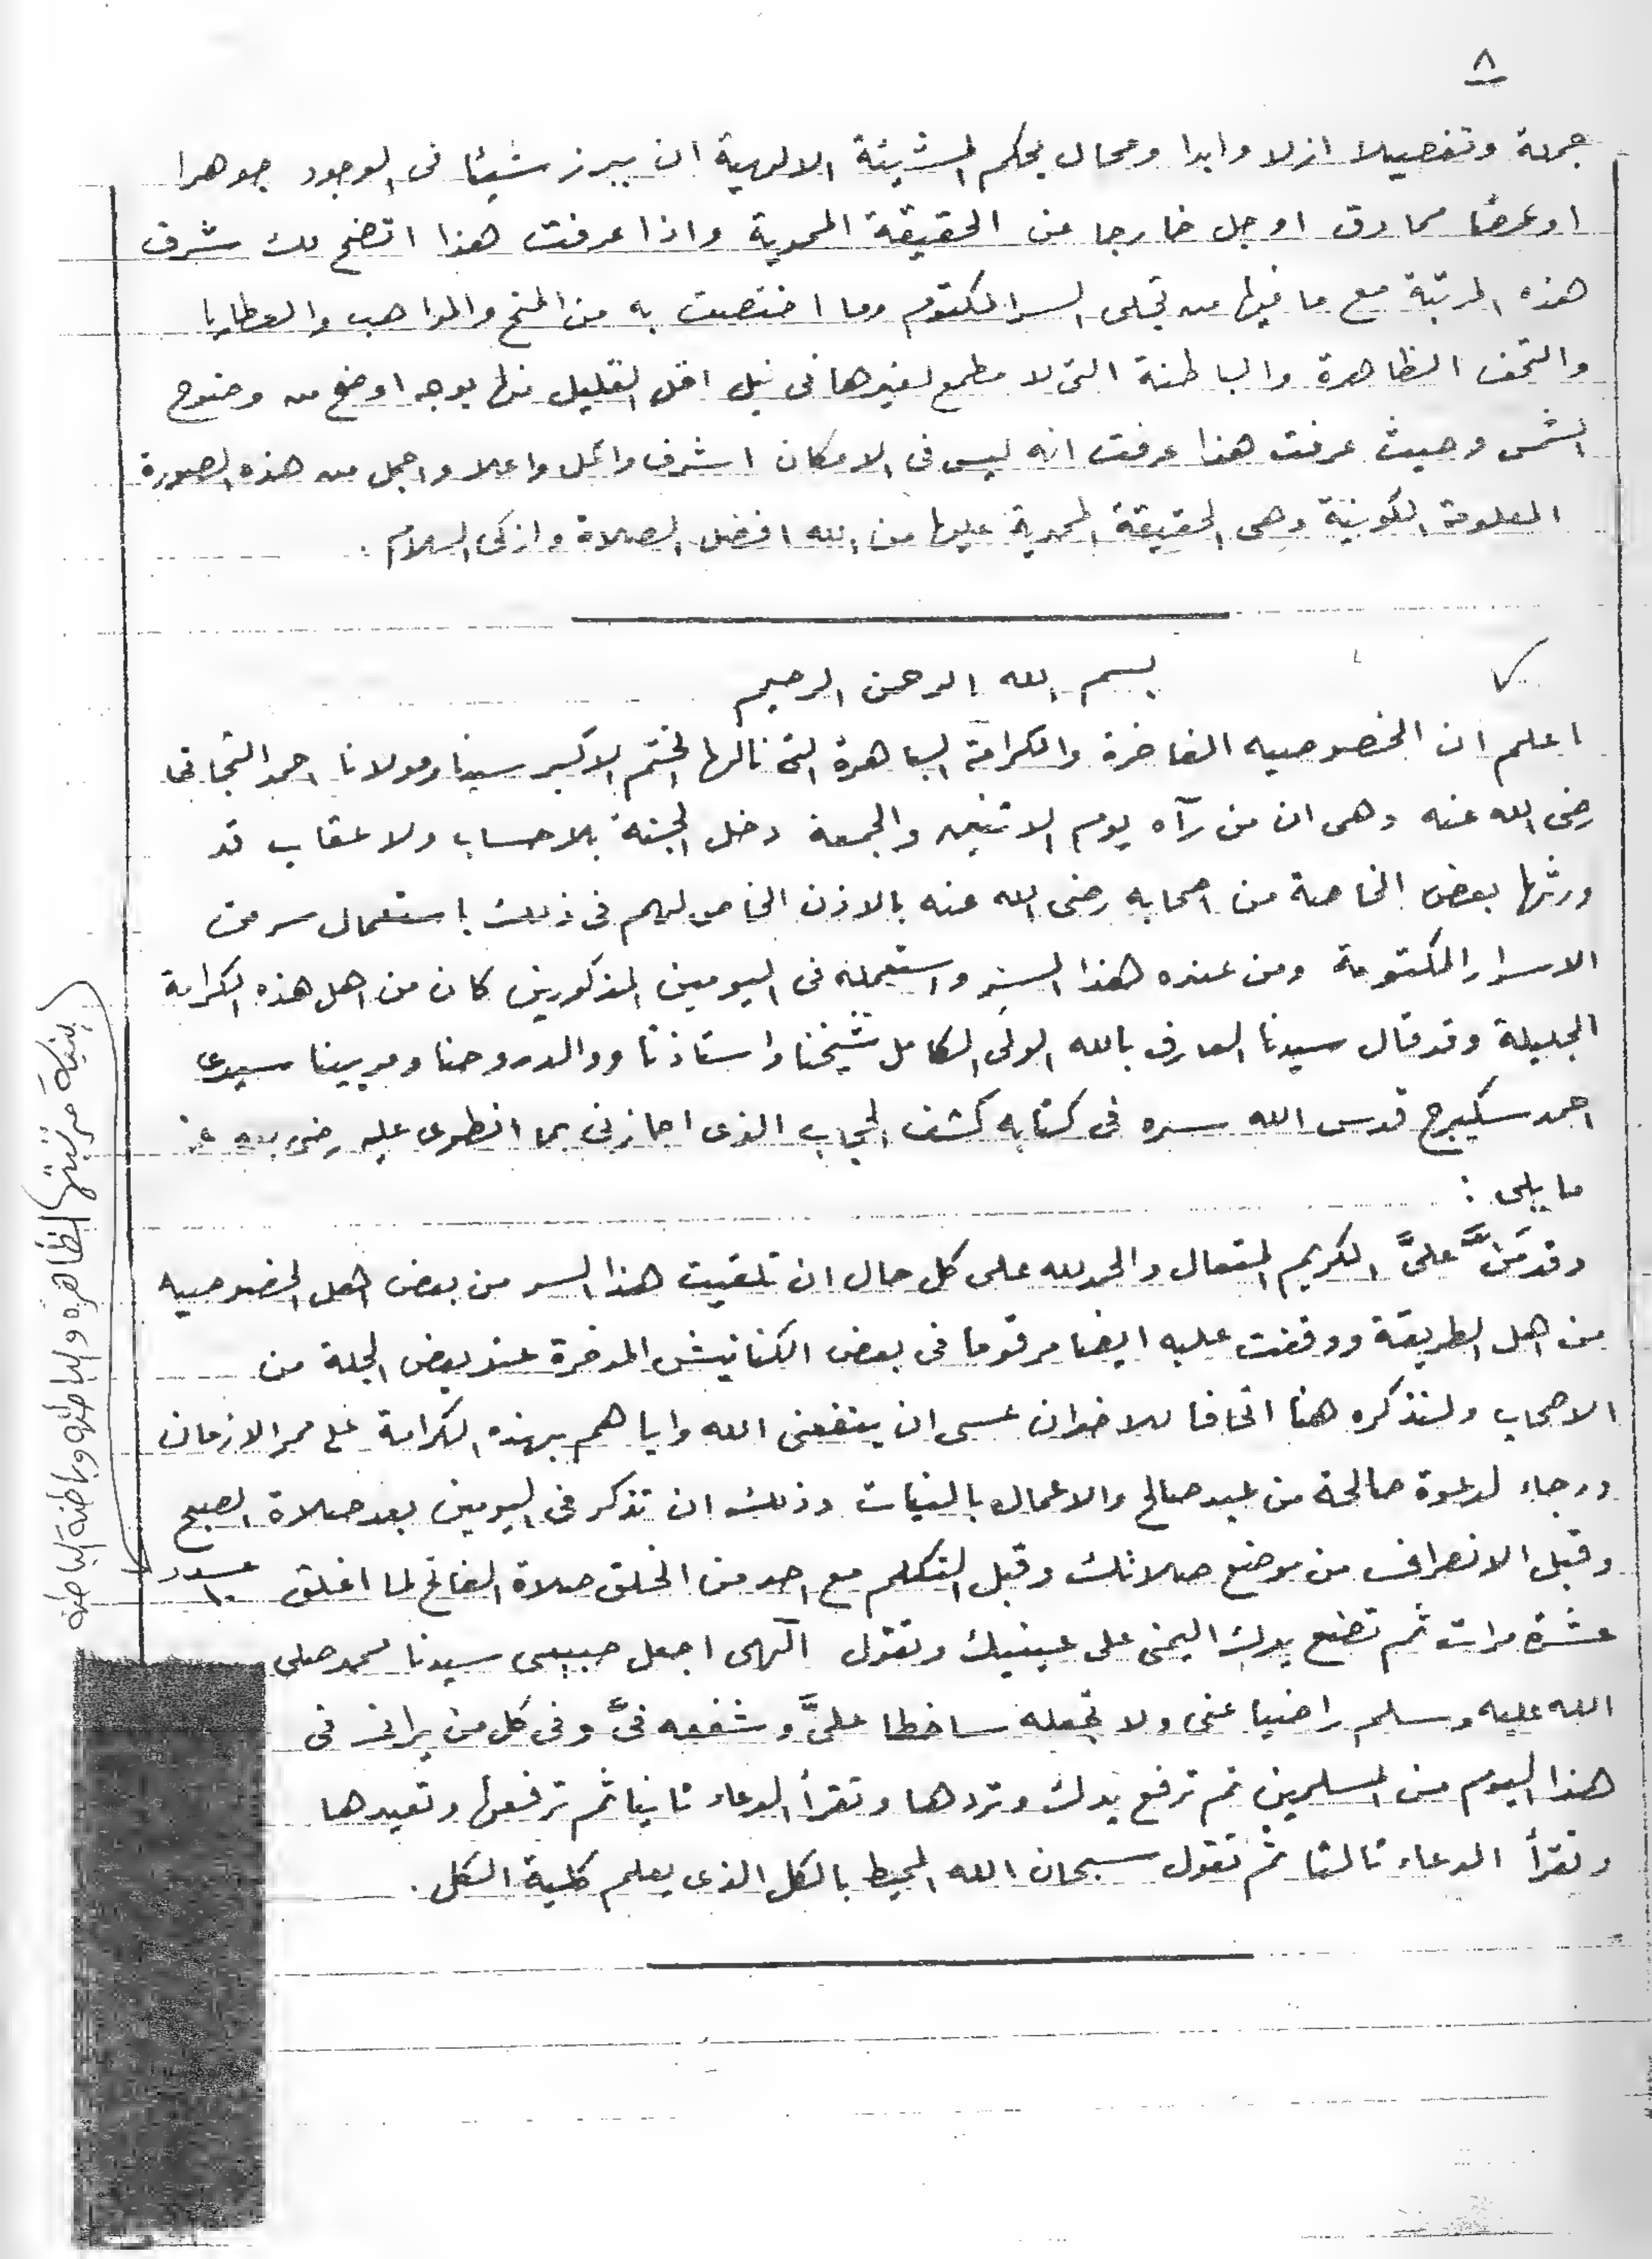 ٨
جملة وتفصيلا ازلا وابدا ومحال بحكم المشيئة الالهية ان يبرز شيئا فى الوجود جوهرا
او عرضا مما دق او جل خارجا عن الحقيقة المحمدية واذا عرفت هذا اتضح لك شرف
هذه المرتبة مع ما فيها من تجلى السر المكتوم وما اختصت به من المنح والمواهب والعطايا
والتحف الظاهرة والباطنة التى لا مطمع لغيرها فى نيل اقل القليل منها بوجه اوضح من وضوح
الشمس وحيث عرفت هذا عرفت انه ليس فى الامكان اشرف واكمل واعلا واجمل من هذه الصورة
المعلومة الكونية وهى الحقيقة المحمدية عليها من الله افضل الصلاة وازكى السلام .
بسم الله الرحمن الرحيم
اعلم ان الخصوصيه الفاخرة والكرامة الباهرة التى نالها الختم الاكبر سيدنا ومولانا احمد التجانى
رضى الله عنه وهى ان من رآه يوم الاثنين والجمعة دخل الجنة بلا حساب ولا عقاب قد
ورثها بعض الخاصة من اصحابه رضى الله عنه بالاذن الخاص لهم فى ذلك باستعمال سر من
الاسرار المكتومة ومن عنده هذا السر واستعمله فى اليومين المذكورين كان من اهل هذه الكرامة
الجليلة وقد قال سيدنا العارف بالله الولى الكامل شيخنا واستاذنا ووالد روحنا ومربينا سيدى
احمد سكيرج قدس الله سره فى كتابه كشف الحجاب الذى اجازنى بما انطوى عليه رضى الله عنه
ما يلى :
وقد مَنَّ علىَّ الكريم المتعال والحمد لله على كل حال ان تلقيت هذا السر من بعض اهل الخصوصيه
من اهل الطريقة ووقفت عليه ايضا مرقوما فى بعض الكنانيش المدخرة عند بعض الجلة من
الاصحاب ولنذكره هنا اتحافا للاخوان عسى ان ينفعنى الله واياهم بهذه الكرامة على ممر الازمان
ورجاء لدعوة صالحة من عبد صالح والاعمال بالنيات وذلك ان تذكر فى اليومين بعد صلاة الصبح
وقبل الانصراف من موضع صلاتك وقبل التكلم مع احد من الخلق صلاة الفاتح لما اغلق
عشرة مرات ثم تضع يدك اليمنى على عينيك وتقول الهى اجعل حبيبى سيدنا محمد صلى
الله عليه وسلم راضيا عنى ولا تجعله ساخطا علىَّ وشفعه فىَّ وفى كل من يرانى فى
هذا اليوم من المسلمين ثم ترفع يدك وتردها وتقرأ الدعاء ثانيا ثم ترفعها وتعيدها
وتقرأ الدعاء ثالثا ثم تقول سبحان الله المحيط بالكل الذى يعلم كلية الكل .
بنية مرتبتها الظاهرة والباطنة وباطنة الباطنة